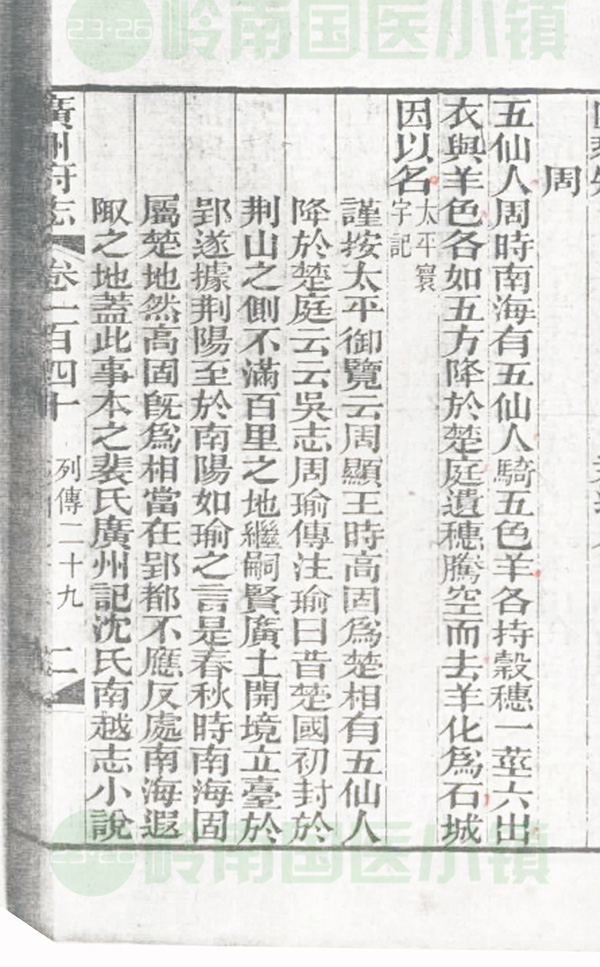 23:26 岭南国医小镇
周
五仙人周時南海有五仙人騎五色羊各持穀穗一莖六出
衣與羊色各如五方降於楚庭遺穗騰空而去羊化爲石城
因以名太平寰宇記
謹按太平御覽云周顯王時高固爲楚相有五仙人
降於楚庭云云吳志周瑜傳注瑜曰昔楚國初封於
荆山之側不滿百里之地繼嗣賢廣土開境立臺於
郢遂據荆陽至於南陽如瑜之言是春秋時南海固
屬楚地然高固旣爲相當在郢都不應反處南海遐
陬之地蓋此事本之裴氏廣州記沈氏南越志小說
廣州府志 卷一百四十 列傳二十九 二
23:26 岭南国医小镇